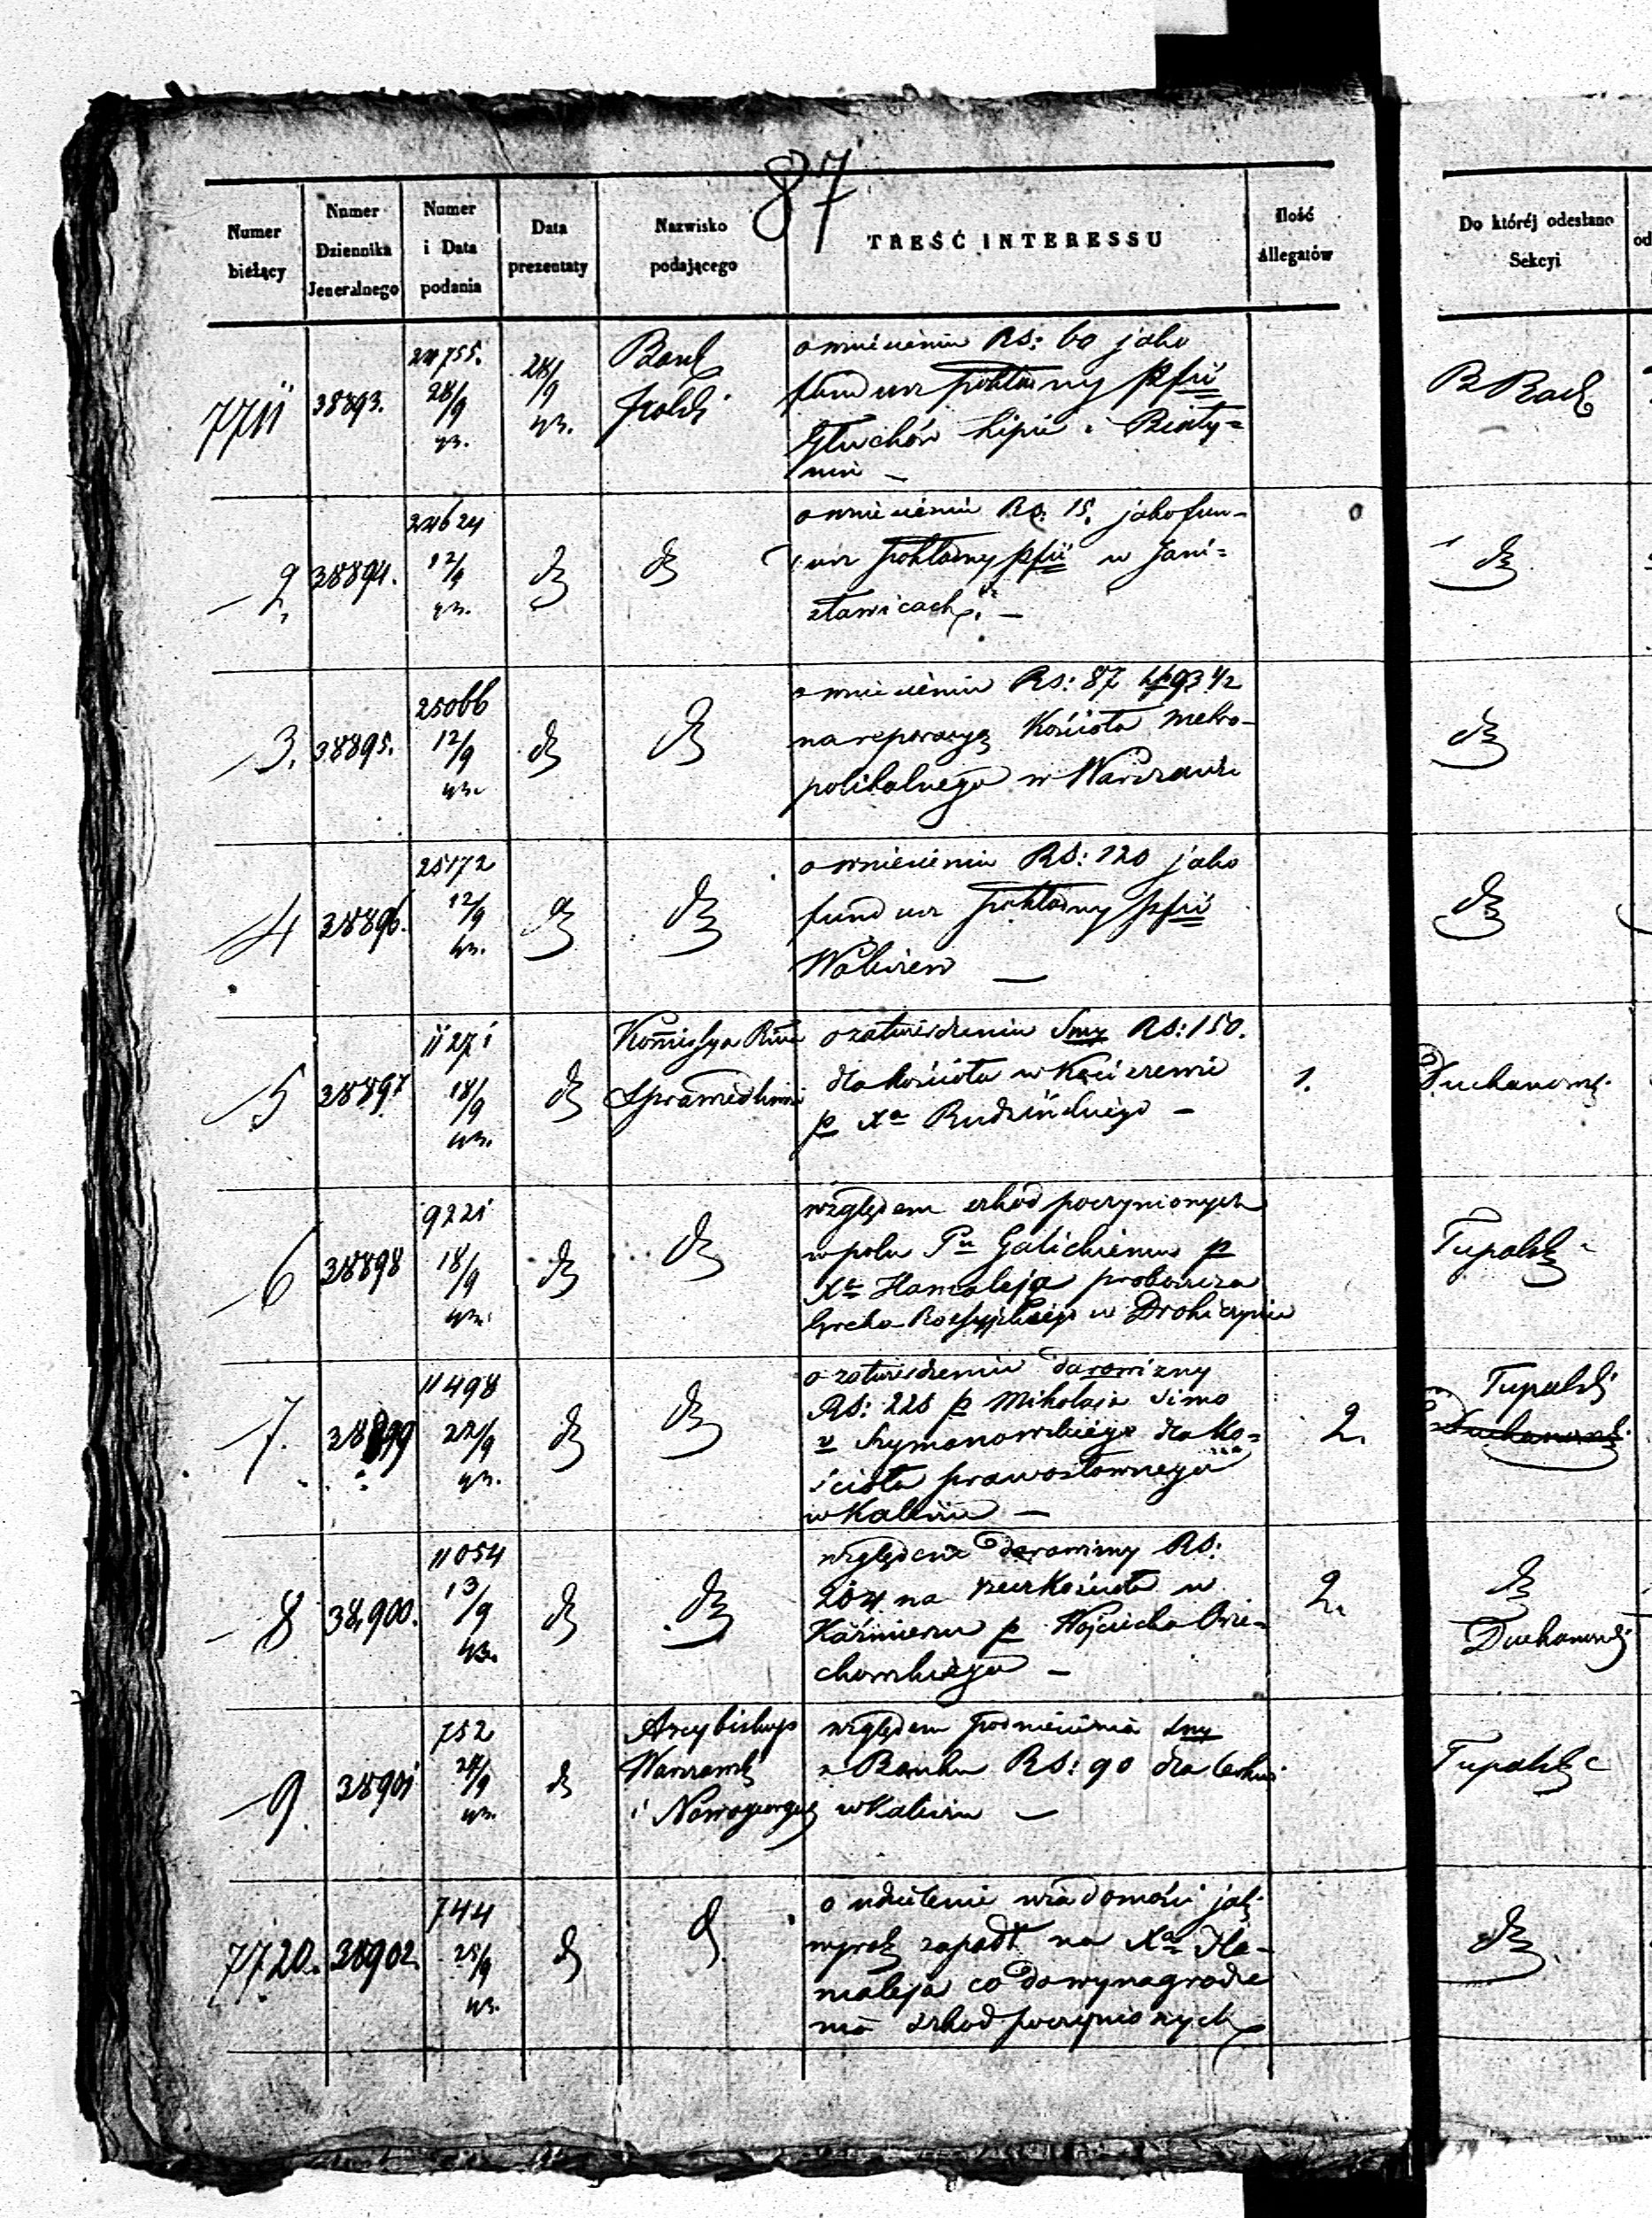 87
Numer bieżący
Numer Dziennika Jeneralnego
Numer i Data podania
Data prezentaty
Nazwisko podającego
TREŚĆ INTERESSU
Ilość Allegatów
Do któréj odesłano Sekcyi
7711 38893. 24755. 28/9 43. 28/9 43. Bank Polski
o wniesieniu RS: 60 jako
fundusz pokładny pfii
Głuchów Lipie i Biały-
nin —
2, 38894. 24624 12/9 43. dz dz
o wniesieniu Rs. 15. jako fun-
pokładny pfii w Jani-
sławicach. —
dz
3. 38895. 25066 12/9 43. dz dz
o wniesieniu RS: 87 kp 93 1/2
na reperacyą Kościoła Metro-
politalnego w Warszawie
dz
4 38896. 25172 12/9 43. dz dz
o wniesieniu RS: 120 jako
fundusz pokładny pfii
—
dz
5 38897 11271 18/9 43. dz Kommissya
Sprawiedliwości
o zatwierdzeniu Smy RS: 150.
dla kościoła w
p Xa Rudzińskiego —
1.
Duchanows.
6 38898 9221 18/9 43. dz dz
względem szkód poczynionych
w polu Pu Galickiemu p
Xa Hamaleja proboszcza
Greko Rossyjskiego w Drohiczynie
Tupalsk
7. 38899 11498 22/9 43. dz dz
o zatwierdzeniu darowizny
RS: 225 p Mikołaja Simo
v Szymanowskiego dla Ko-
ścioła prawosławnego
w Kaliszu —
2.
Tupalski
8 38,900. 11054 13/9 43. dz dz
względem darowizny RS:
204 na rzecz Kościoła w
Kaźmierzu p Wojciecha Orze-
chowskiego —
2.
dz
Duchanowski
9. 38901 752 24/9 43. dz Arcybiskup
Warszawski
i Nowogeorgiewski
względem podniesienia Smy
z Banku RS: 90 dla Cerkwi
w Kaliszu —
Tupalski
7720. 38902. 744 25/9 43. d d
o udzielenie wiadomości jaki
wyrok zapadł na Xa Ha-
maleja co do wynagrodze
nia szkod poczynionych
dz